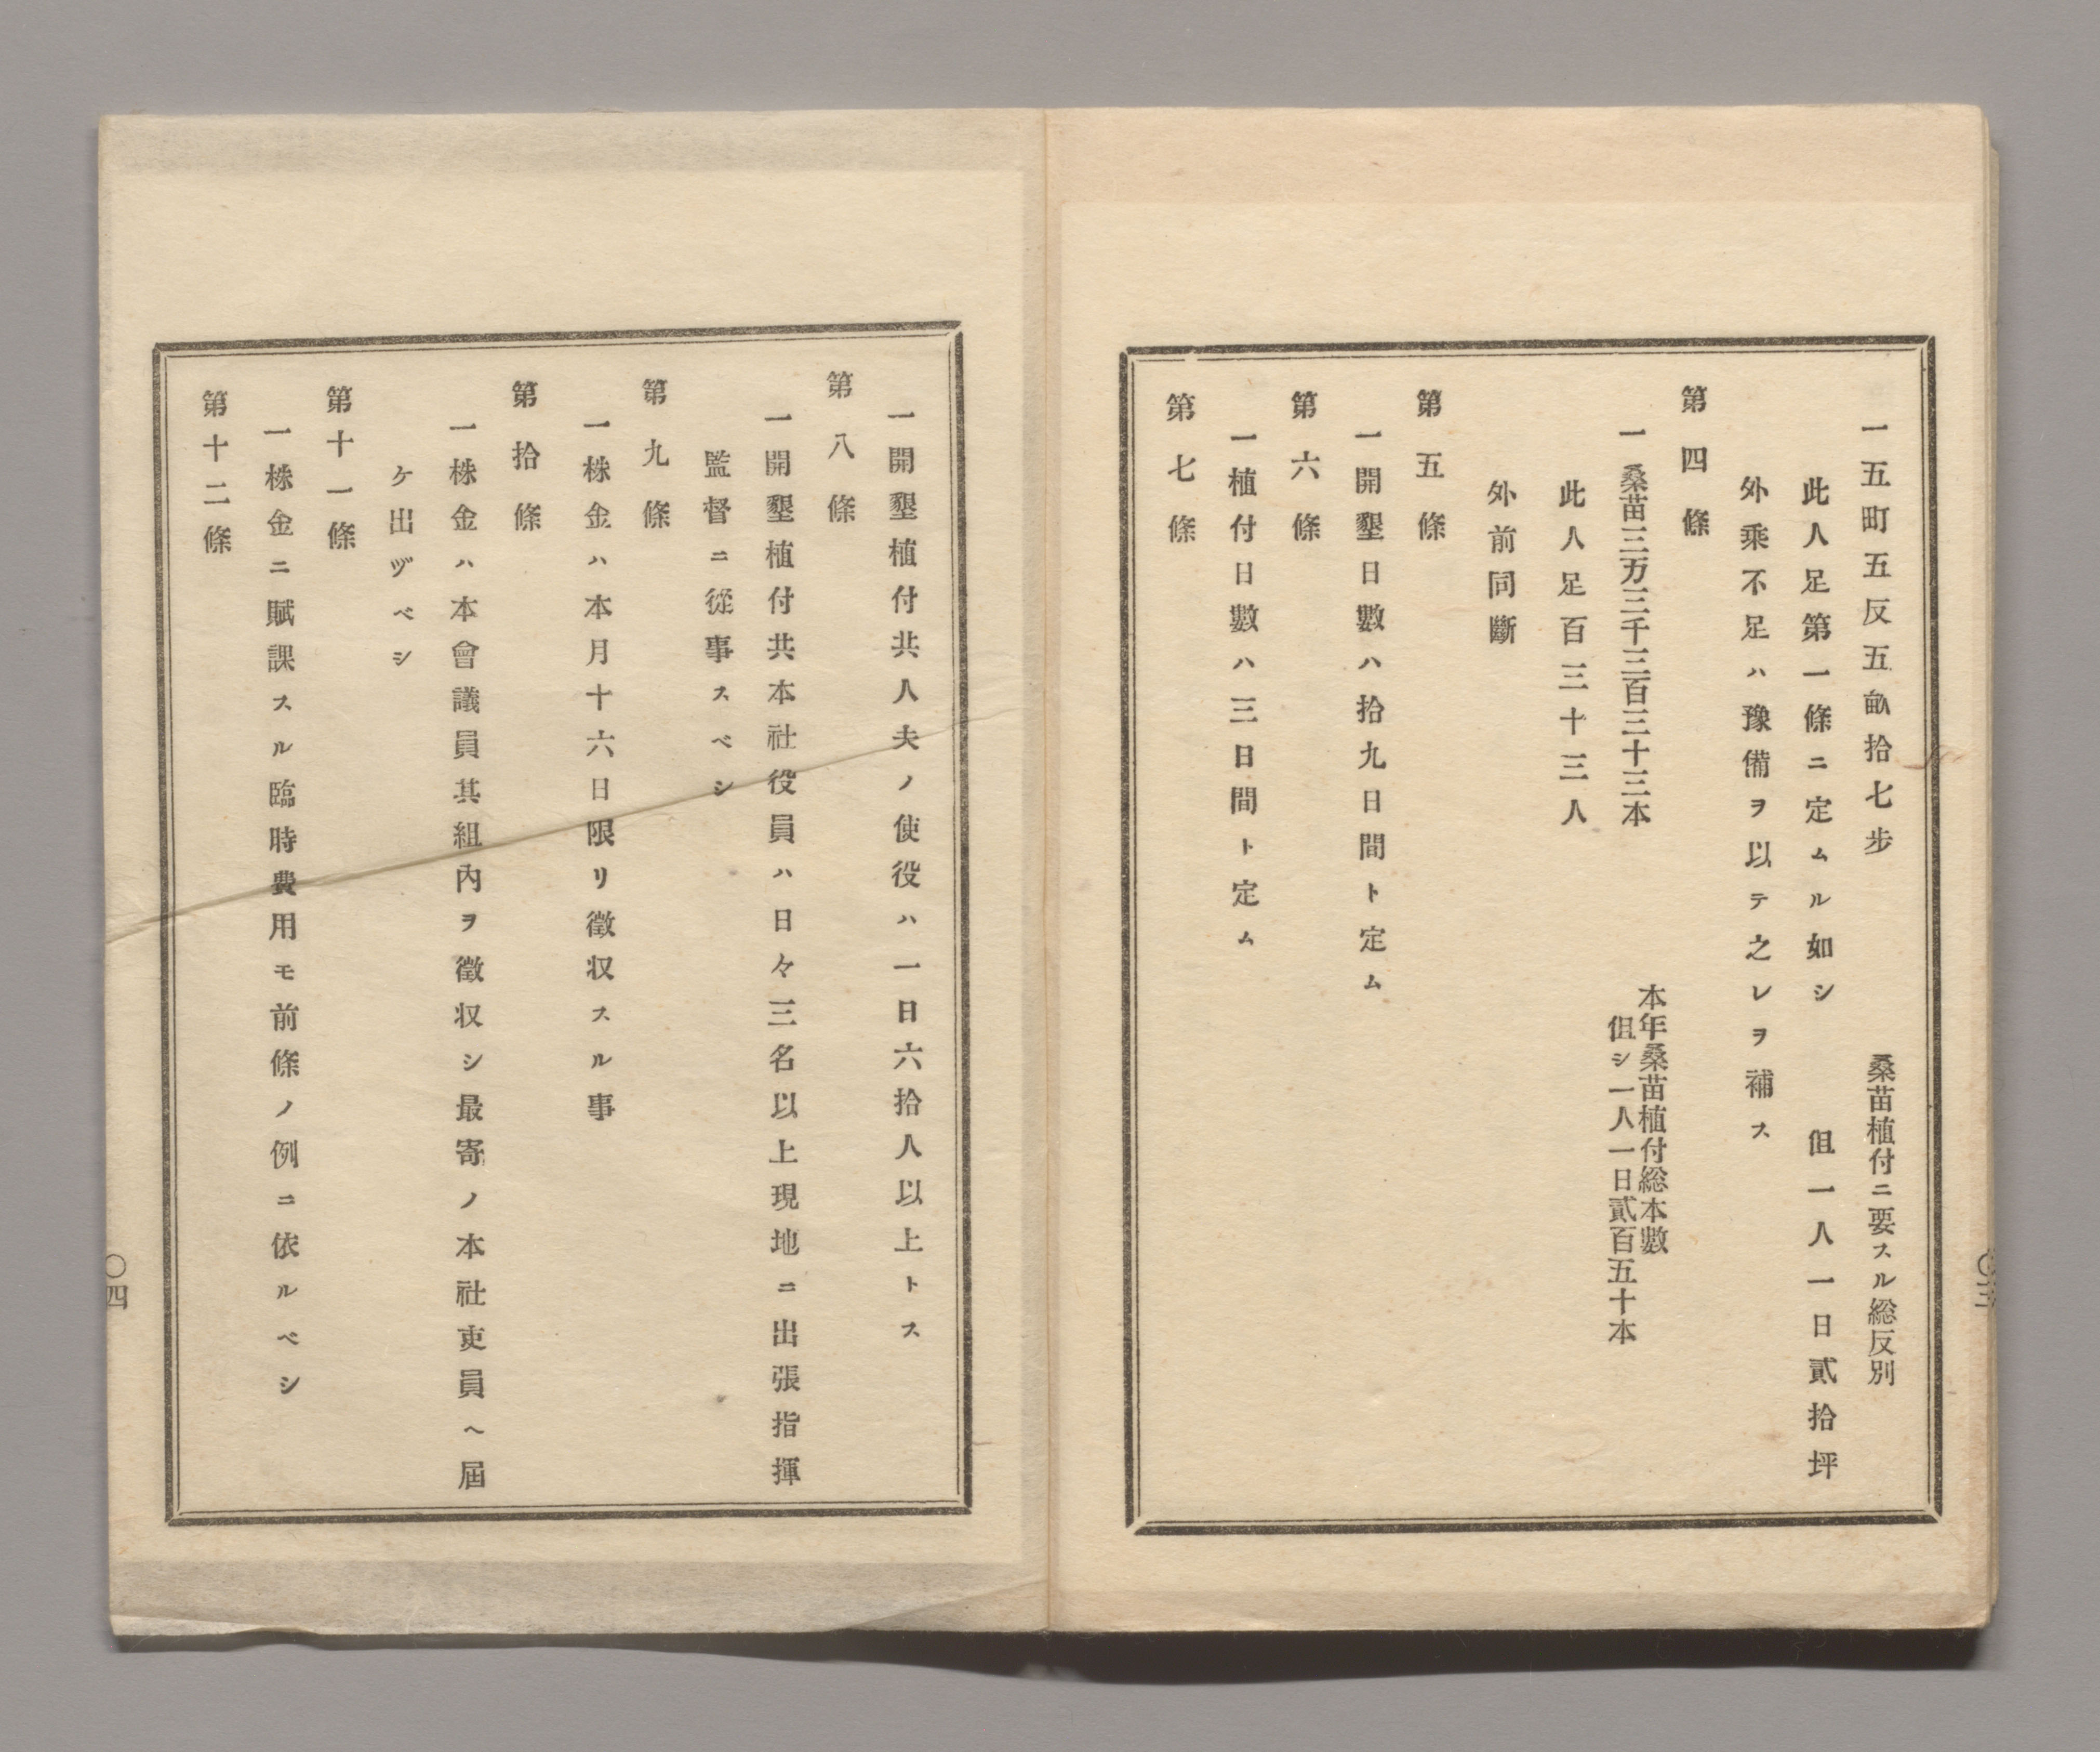 一五町五反五畝拾七歩　桑苗植付ニ要スル総反別
此人足第一條ニ定ムル如シ　但一人一日貳拾坪
外乘不足ハ豫備ヲ以テ之レヲ補ス
第四條
一桑苗三万三千三百三十三本　本年桑苗植付総本數
但シ一人一日貳百五十本
此人足百三十三人
外前同斷
第五條
一開墾日數ハ拾九日間ト定ム
第六條
一植付日數ハ三日間ト定ム
第七條
一開墾植付共人夫ノ使役ハ一日六拾人以上トス
第八條
一開墾植付共本社役員ハ日々三名以上現地ニ出張指揮
監督ニ從事スベシ
第九條
一株金ハ本月十六日限リ徵収スル事
第拾條
一株金ハ本會議員其組内ヲ徵収シ最寄ノ本社吏員ヘ屆
ケ出ヅベシ
第十一條
一株金ニ賦課スル臨時費用モ前條ノ例ニ依ルベシ
第十二條
〇四